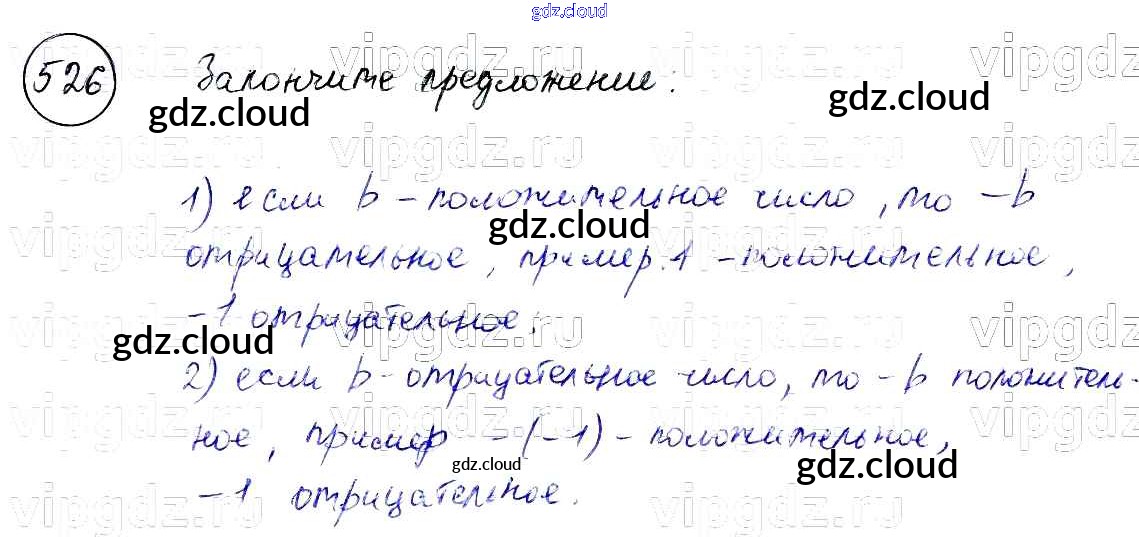 gdz.cloud
526 Закончите предложение:
gdz.cloud gdz.cloud
vipgdz.ru vipgdz.ru vipgdz.ru vipgdz.ru
1) если b – положительное число, то – b
gdz.cloud
отрицательное, пример: 1 – положительное,
– 1 отрицательное;
gdz.cloud
2) если b – отрицательное число, то – b положитель-
ное, пример – (– 1) – положительное,
gdz.cloud gdz.cloud
– 1 отрицательное.